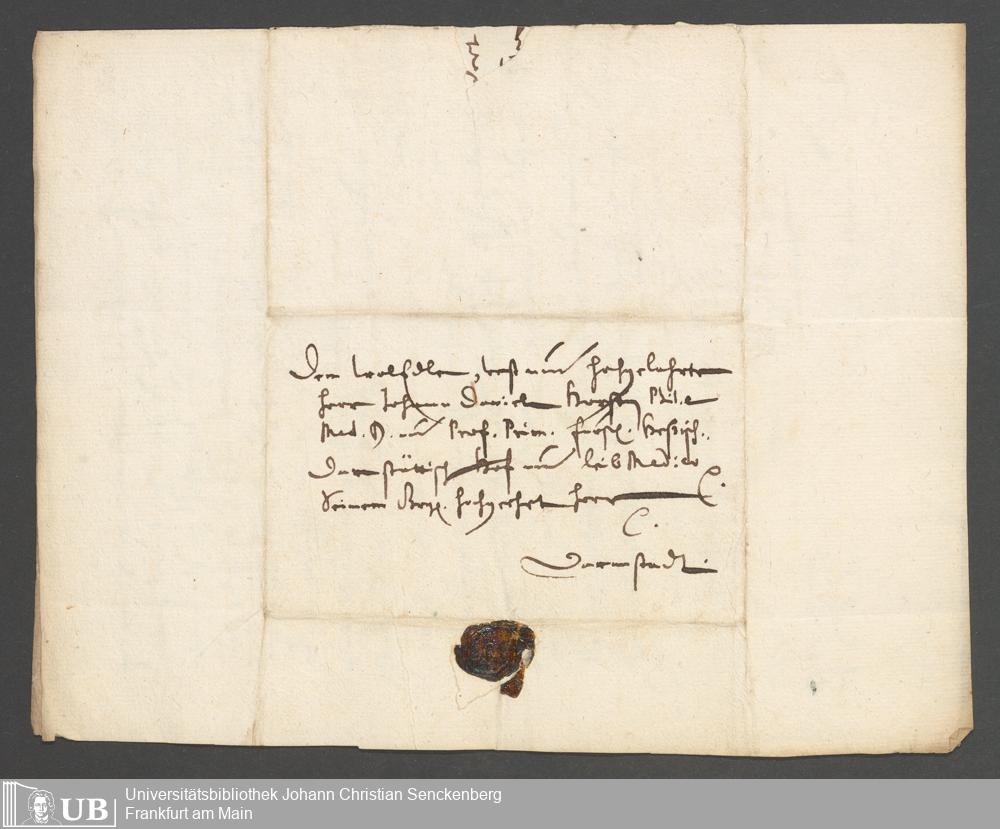 Dem WolEdlen, Vest und hochgelahrten
Herrn Johann Daniel Horsten Phil. &
Med. D. und Prof. Prim. fürstl. Hessisch.
Darmstättisch Hof und leib Medico
Seinem hochgeehrt Herrn
Darmstadt.
UB
Universitätsbibliothek Johann Christian Senckenberg
Frankfurt am Main